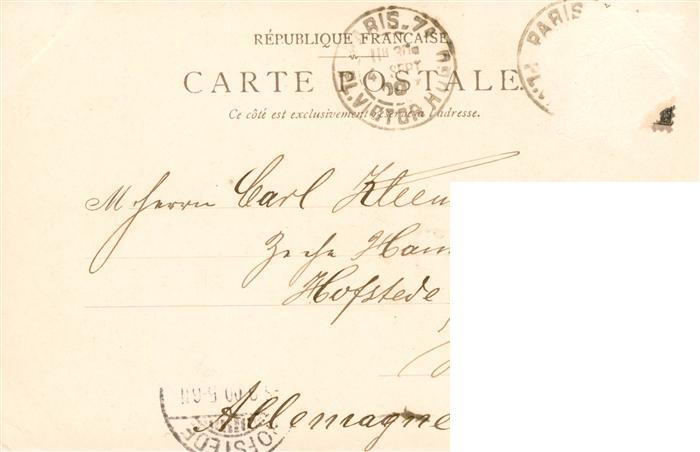 RÉPUBLIQUE FRANÇAISE
CARTE POSTALE
Ce côté est exclusivement réservé à l'adresse.
PARIS-7
SEPT
PL. VICTOR HUGO
PARIS
M Herrn Carl
Zeche
Hofstede
Allemagne
HOFSTEDE